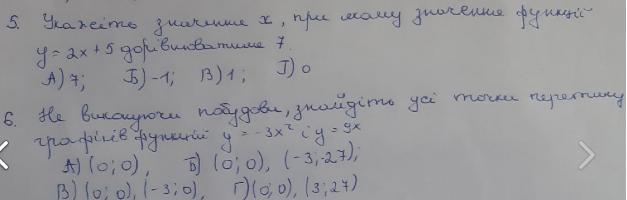 5. Укажіть значення х, при якому значення функції
y = 2x + 5 дорівнюватиме 7.
А) 7; Б) -1; В) 1; Г) 0
6. Не виконуючи побудови, знайдіть усі точки перетину
графіків функцій y = -3x² і y = 9x
А) (0; 0), Б) (0; 0), (-3; -27);
В) (0; 0), (-3; 0), Г) (0; 0), (3; 27)